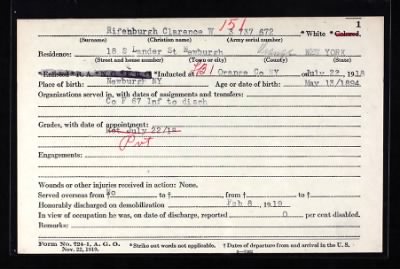 1
Rifenburgh Clarence W 151 3 737 672 * White * Colored.
(Surname) (Christian name) (Army serial number) (Race: White or colored)
Residence: 18 S Lander St Newburgh Orange NEW YORK
(Street and house number) (Town or city) (County) (State)
* Enlisted * R. A. * Inducted at LB1 Orange Co NY on July 22, 1918
Place of birth: Newburgh NY Age or date of birth: May 13/1894
Organizations served in, with dates of assignments and transfers:
Co F 67 Inf to disch
Grades, with date of appointment:
July 22/18
Pvt
Engagements:
Wounds or other injuries received in action: None.
Served overseas from † No to †, from † to †
Honorably discharged on demobilization Feb 8, 1919
In view of occupation he was, on date of discharge, reported 0 per cent disabled.
Remarks:
Form No. 724-1, A. G. O. * Strike out words not applicable. † Dates of departure from and arrival in the U. S.
Nov. 22, 1919.